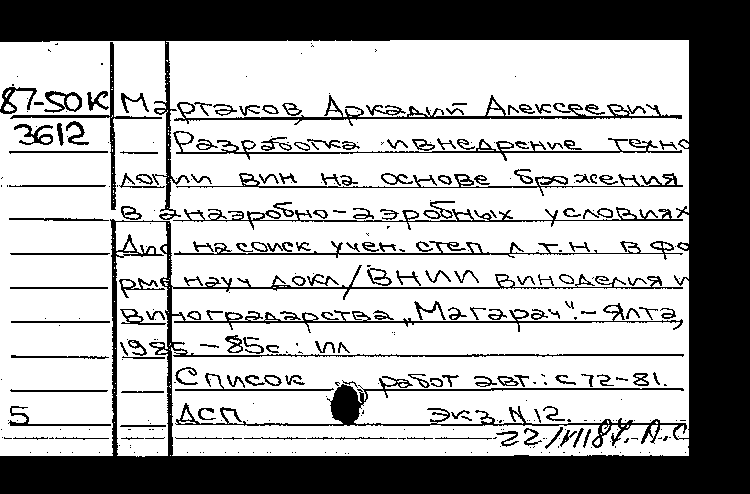 87-50К Мартаков, Аркадий Алексеевич
3612 Разработка и внедрение техно
логии вин на основе брожения
в анаэробно-аэробных условиях
Дис. на соиск. учен. степ д.т.н. в фо
рме науч докл./ВНИИ виноделия и
виноградарства „Магарач".-Ялта,
1985.-85с.: ил
Список работ авт.: с.72-81.
5 ДСП экз. N 12.